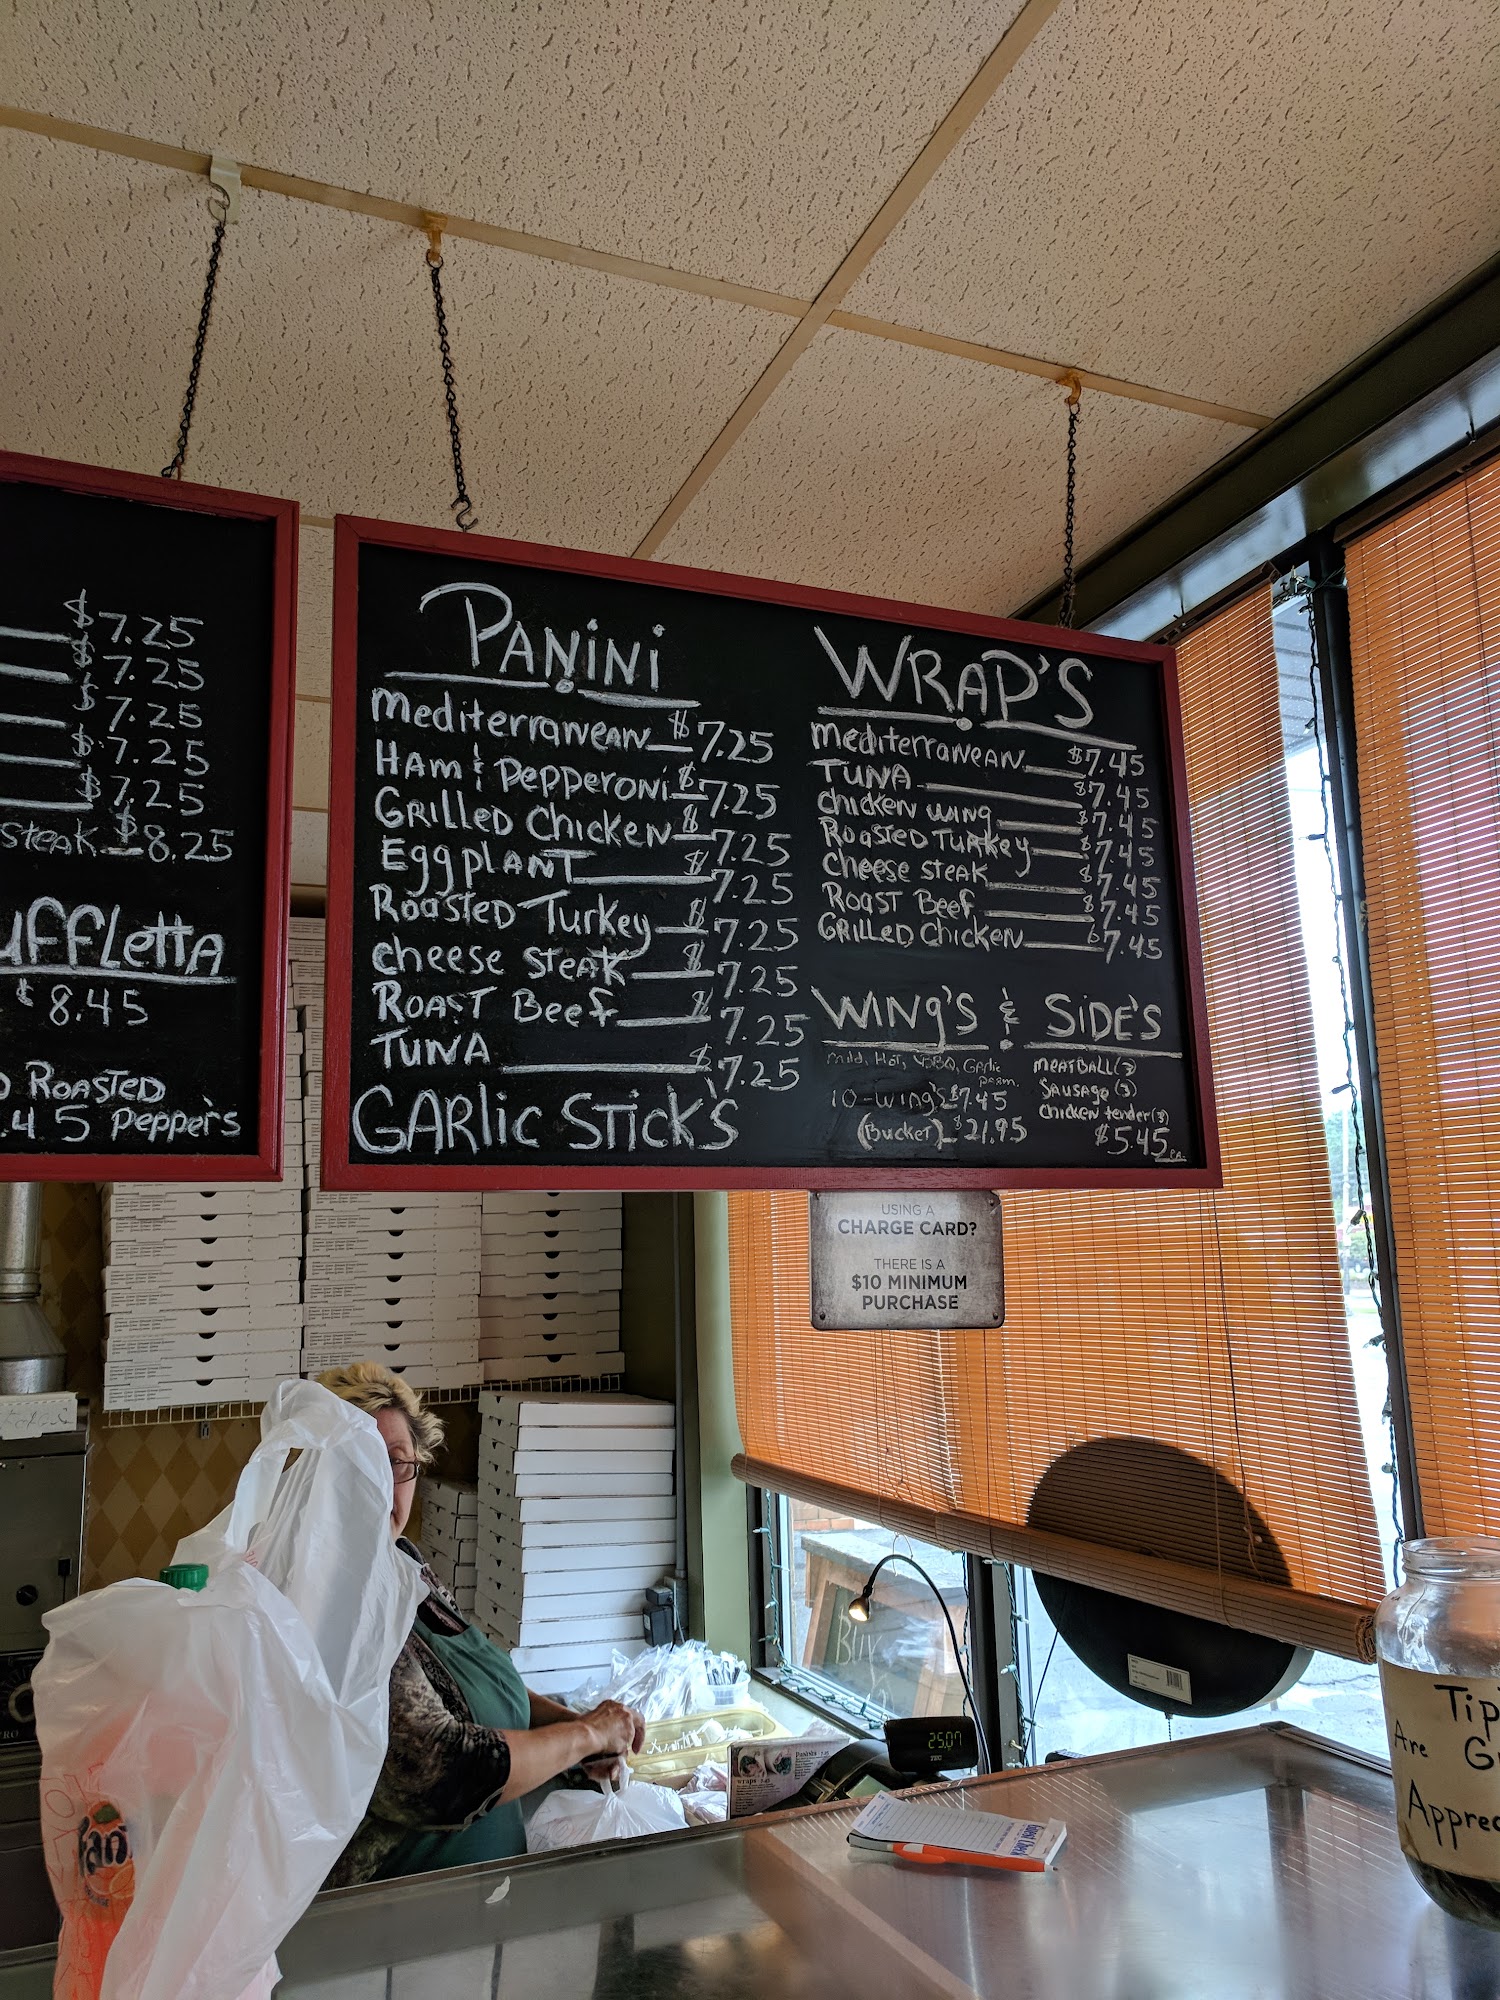 $7.25
$7.25
$7.25
$7.25
$7.25
steak $8.25
uffletta
$8.45
Roasted
.45 Pepper's
Panini
Mediterranean $7.25
Ham & Pepperoni $7.25
Grilled Chicken $7.25
Eggplant $7.25
Roasted Turkey $7.25
Cheese Steak $7.25
Roast Beef $7.25
Tuna $7.25
Garlic Stick's
Wrap's
Mediterranean $7.45
Tuna $7.45
Chicken Wing $7.45
Roasted Turkey $7.45
Cheese Steak $7.45
Roast Beef $7.45
Grilled Chicken $7.45
Wing's & Side's
Mild, Hot, BBQ, Garlic
Parm.
10-Wing's $7.45
(Bucket) $21.95
Meatball (3)
Sausage (3)
Chicken tender (3)
$5.45 ea.
USING A
CHARGE CARD?
THERE IS A
$10 MINIMUM
PURCHASE
Buy
25.07
TEC
Paninis
wraps
Guest Check
Tip
Are
Apprec